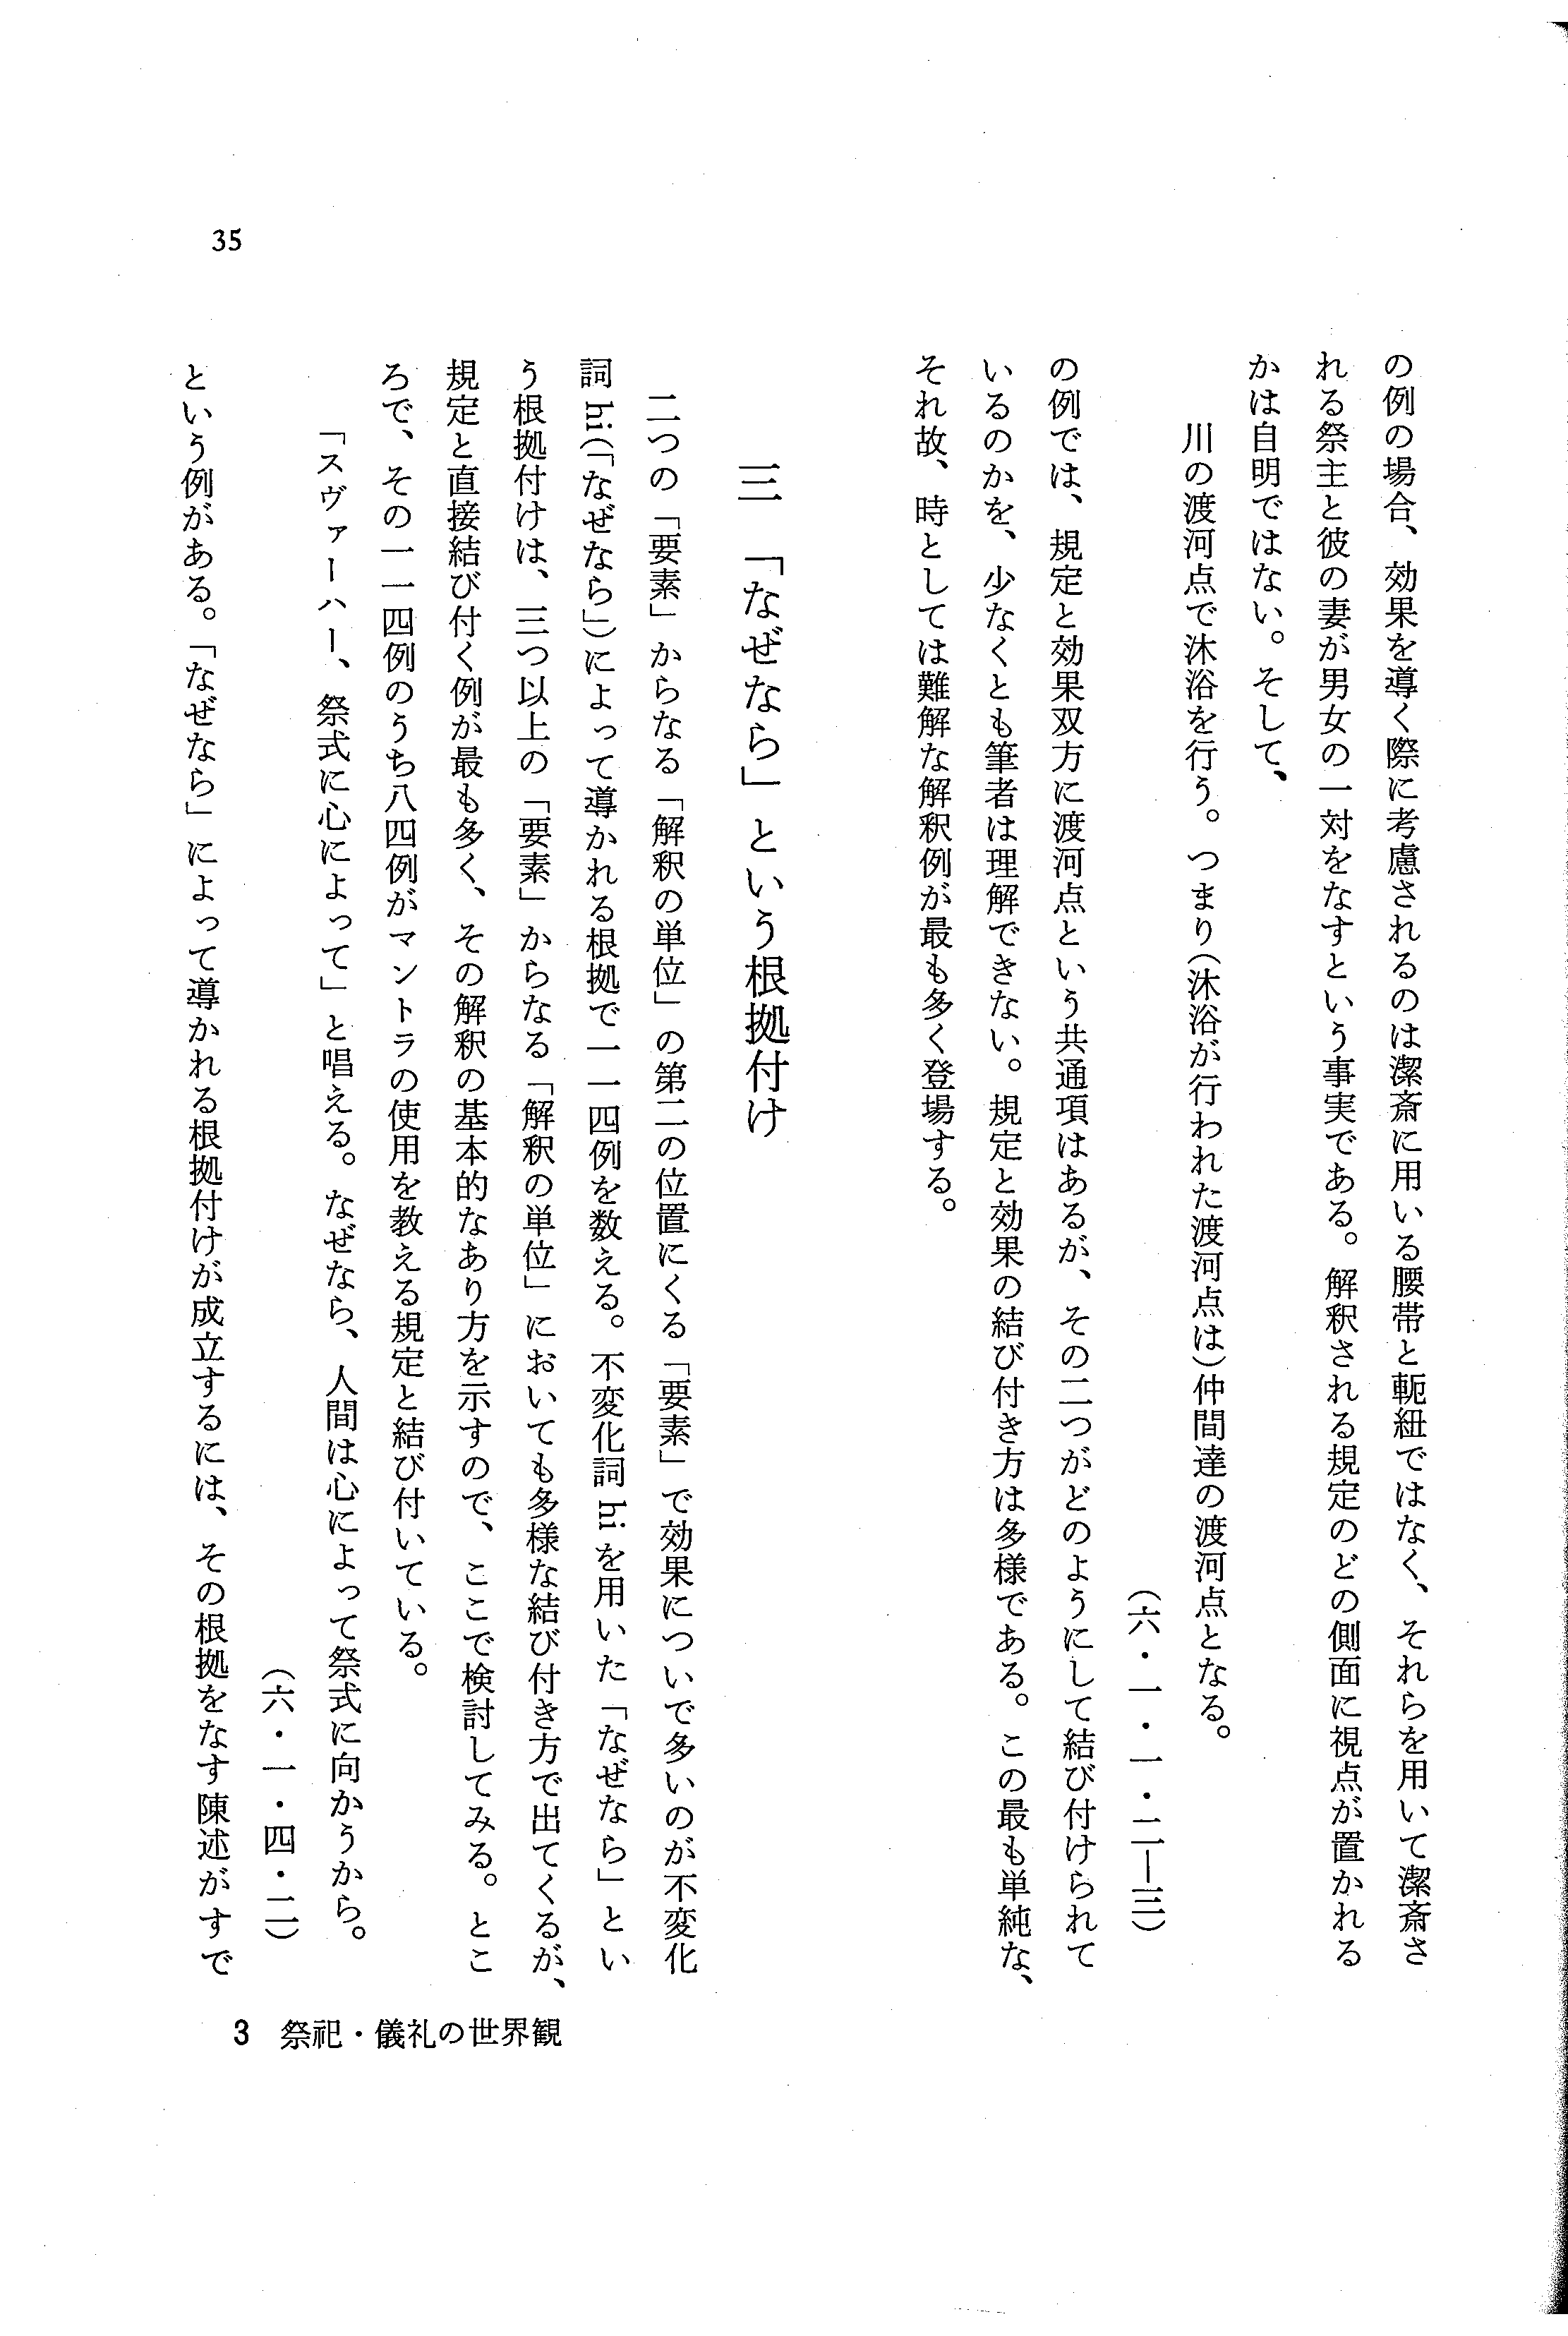 の例の場合、効果を導く際に考慮されるのは潔斎に用いる腰帯と軛紐ではなく、それらを用いて潔斎さ
れる祭主と彼の妻が男女の一対をなすという事実である。解釈される規定のどの側面に視点が置かれる
かは自明ではない。そして、
川の渡河点で沐浴を行う。つまり(沐浴が行われた渡河点は)仲間達の渡河点となる。
(六・一・一・二―三)
の例では、規定と効果双方に渡河点という共通項はあるが、その二つがどのようにして結び付けられて
いるのかを、少なくとも筆者は理解できない。規定と効果の結び付き方は多様である。この最も単純な、
それ故、時としては難解な解釈例が最も多く登場する。
三 「なぜなら」という根拠付け
二つの「要素」からなる「解釈の単位」の第二の位置にくる「要素」で効果についで多いのが不変化
詞 hi(「なぜなら」)によって導かれる根拠で一一四例を数える。不変化詞 hi を用いた「なぜなら」とい
う根拠付けは、三つ以上の「要素」からなる「解釈の単位」においても多様な結び付き方で出てくるが、
規定と直接結び付く例が最も多く、その解釈の基本的なあり方を示すので、ここで検討してみる。とこ
ろで、その一一四例のうち八四例がマントラの使用を教える規定と結び付いている。
「スヴァーハー、祭式に心によって」と唱える。なぜなら、人間は心によって祭式に向かうから。
(六・一・四・二)
という例がある。「なぜなら」によって導かれる根拠付けが成立するには、その根拠をなす陳述がすで
35
3 祭祀・儀礼の世界観